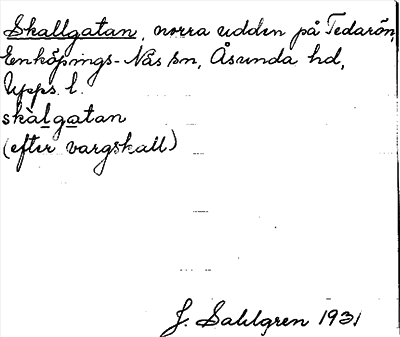 Skallgatan, norra udden på Tedarön,
Enköpings-Näs sn, Åsunda hd,
Upps. l.
skalgatan
(efter vargskall)
J. Sahlgren 1931